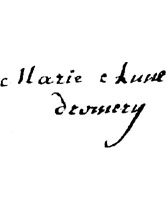 Marie Anne
dromery